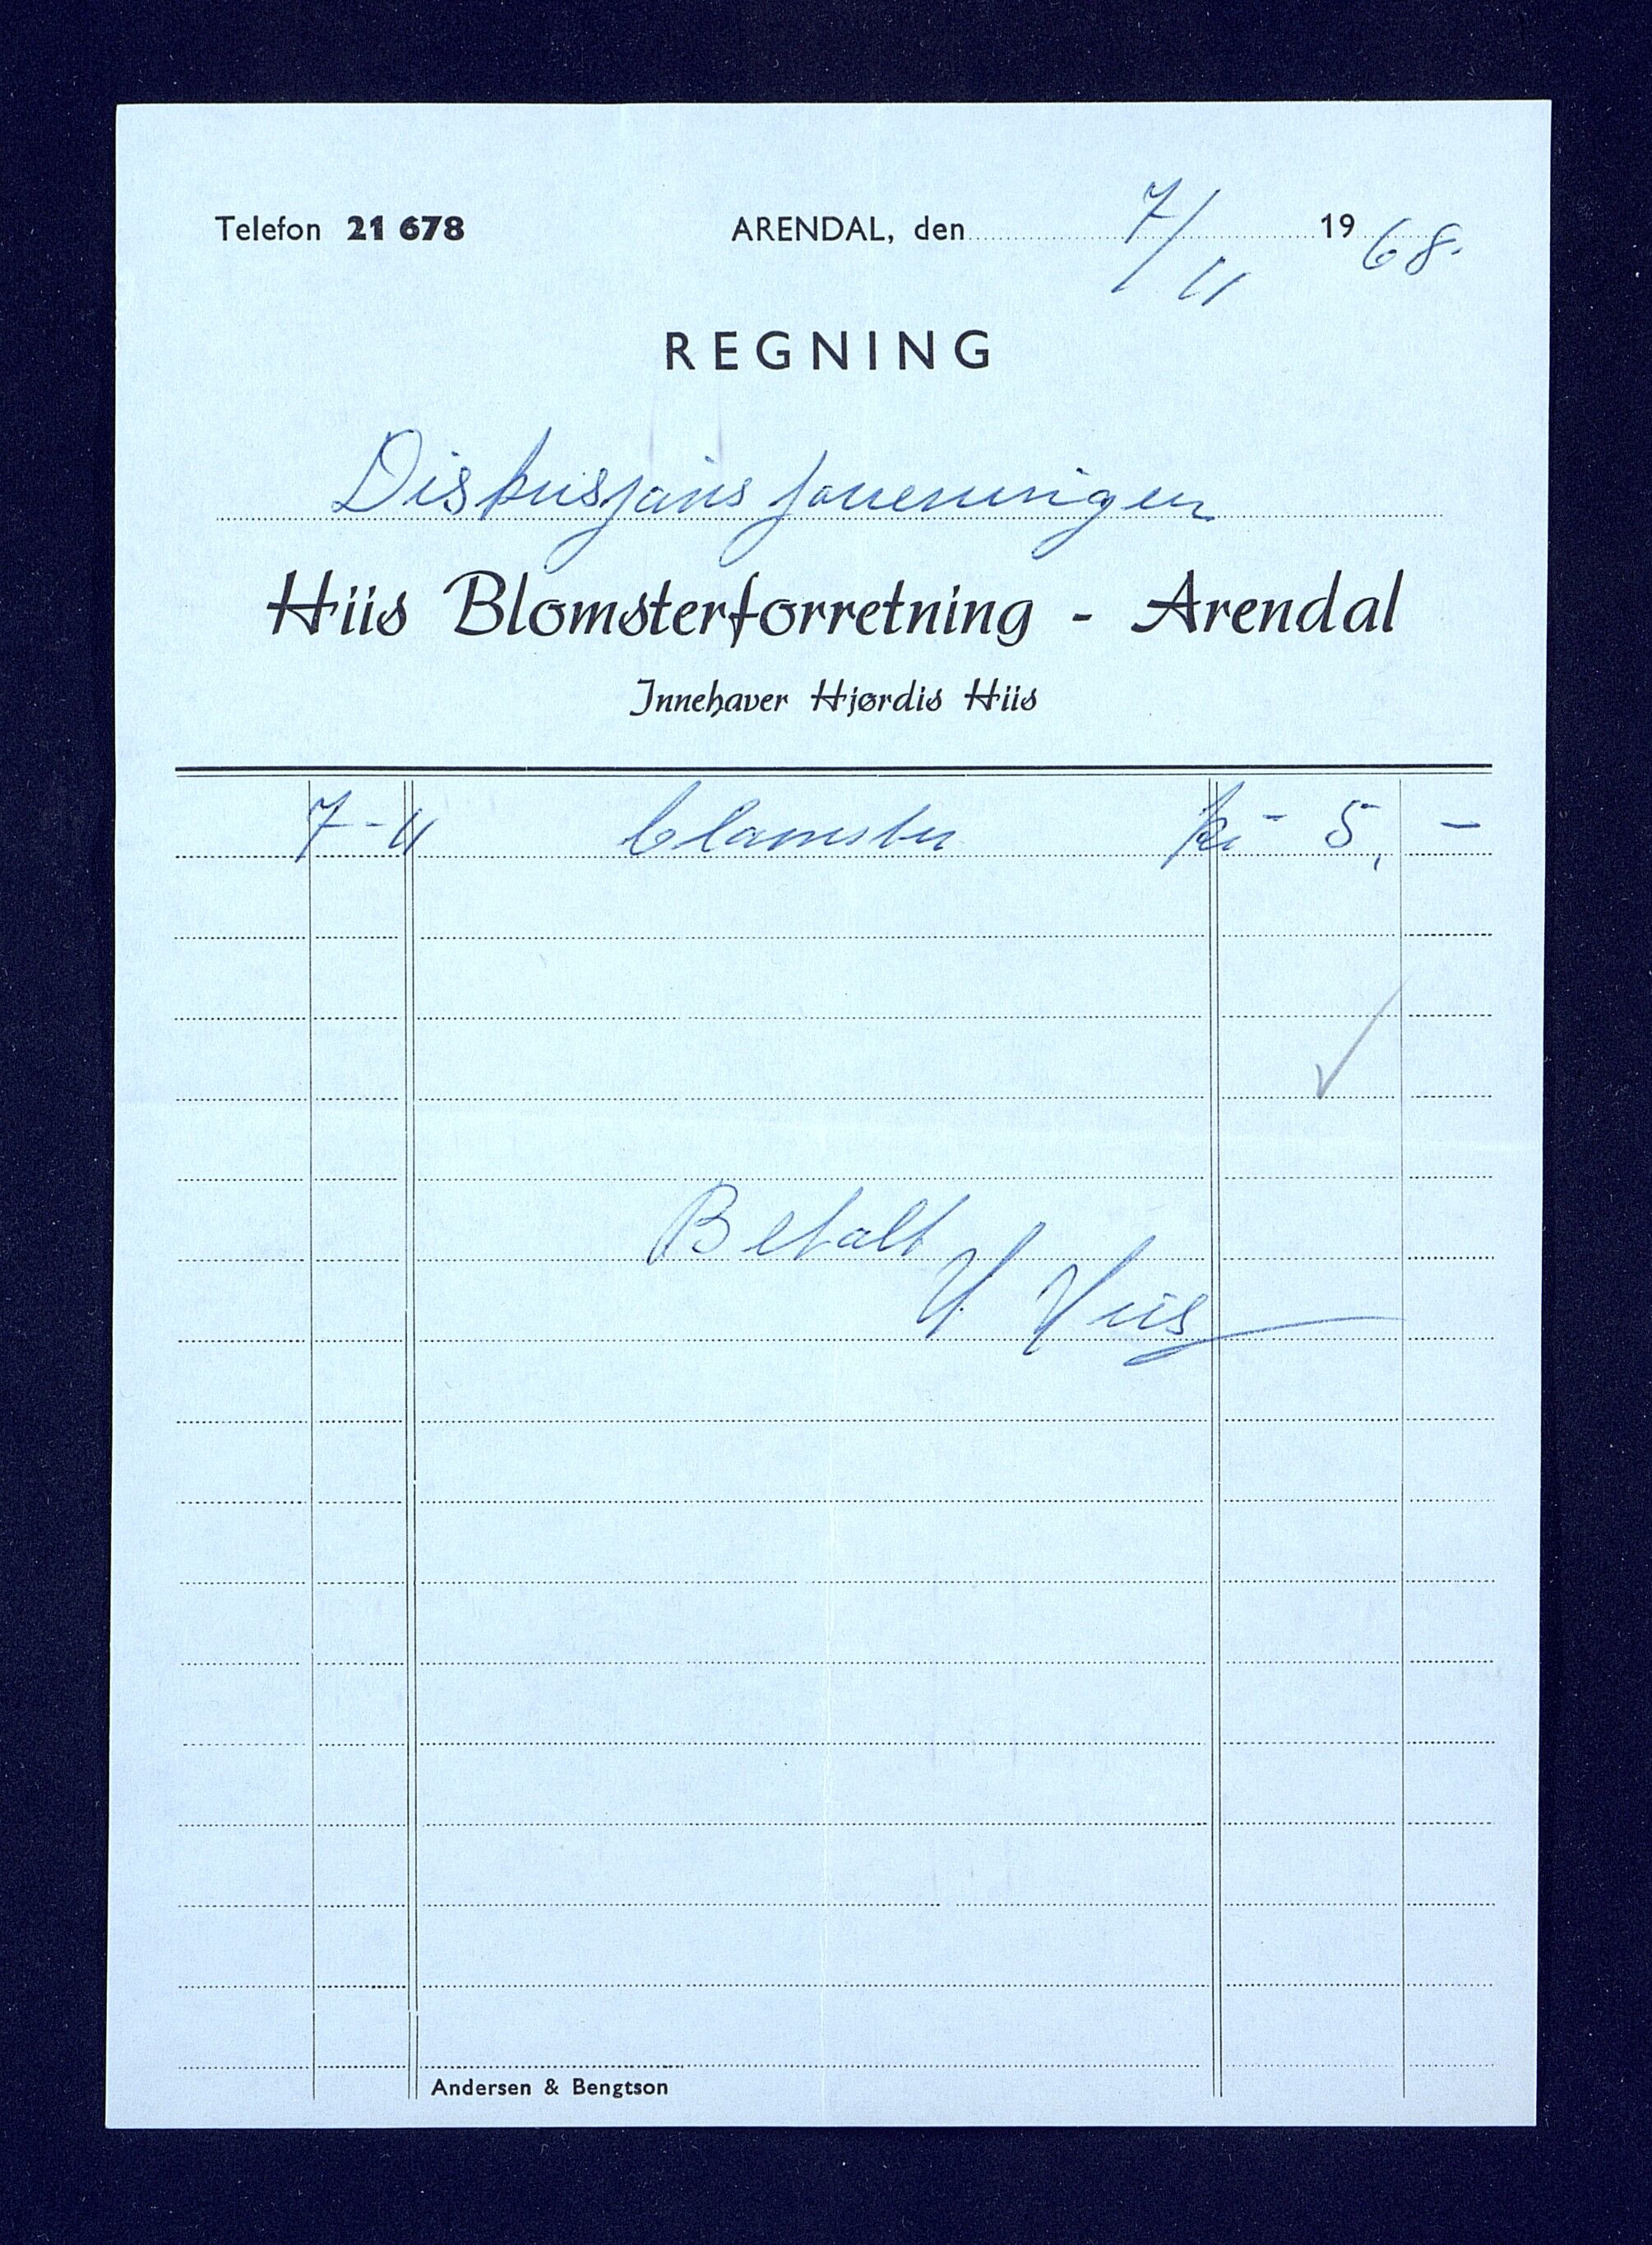 Telefon 21 678 ARENDAL, den 7/11 1968.
REGNING
Diskusjons foreningen
Hiis Blomsterforretning - Arendal
Innehaver Hjørdis Hiis
7-11 blomster kr 5,-
Betalt
H Hiis
Andersen & Bengtson